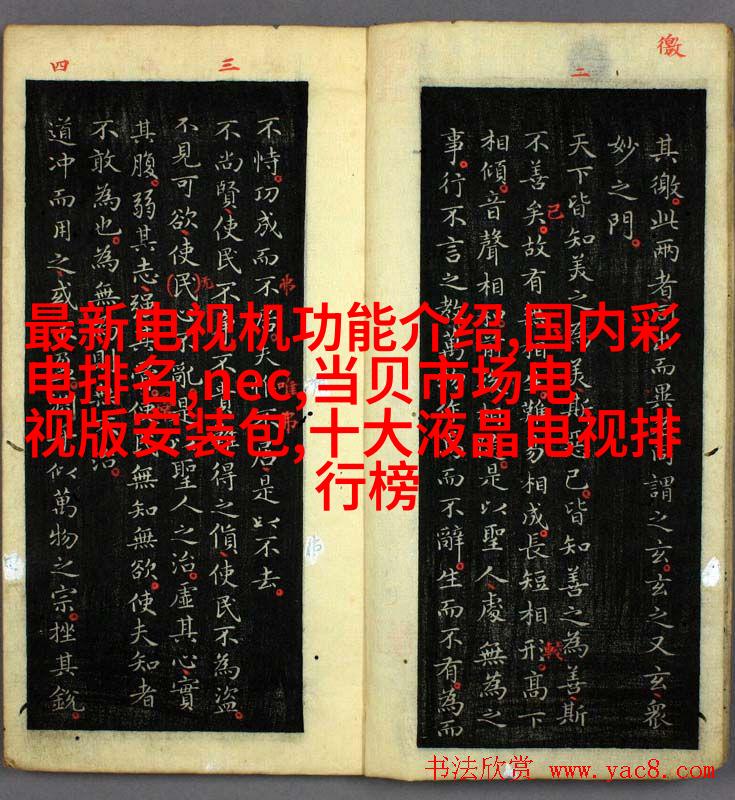 徼
二
其徼。此兩者而異謂之玄。玄之又玄。眾
妙之門。
天下皆知美之美。斯已。皆知善之為善斯
不善矣。故有相生。難易相成。長短相形。高下
相傾。音聲相是以聖人處無為之
事。行不言之教。萬而不辭。生而不有。為而
己
較
三
四
不恃。功成而不居。是以不去。
不尚賢。使民不不貴得之貨。使民不為盜。
不見可欲。使民不亂。是以聖人之治。虛其心。實
其腹。弱其志。強其使民無知無欲。使夫知者
不敢為也。為無則治。
道冲而用之。或似萬物之宗。挫其銳。
最新电视机功能介绍,国内彩
电排名,nec,当贝市场电
视版安装包,十大液晶电视排
行榜
书法欣赏 www.yac8.com